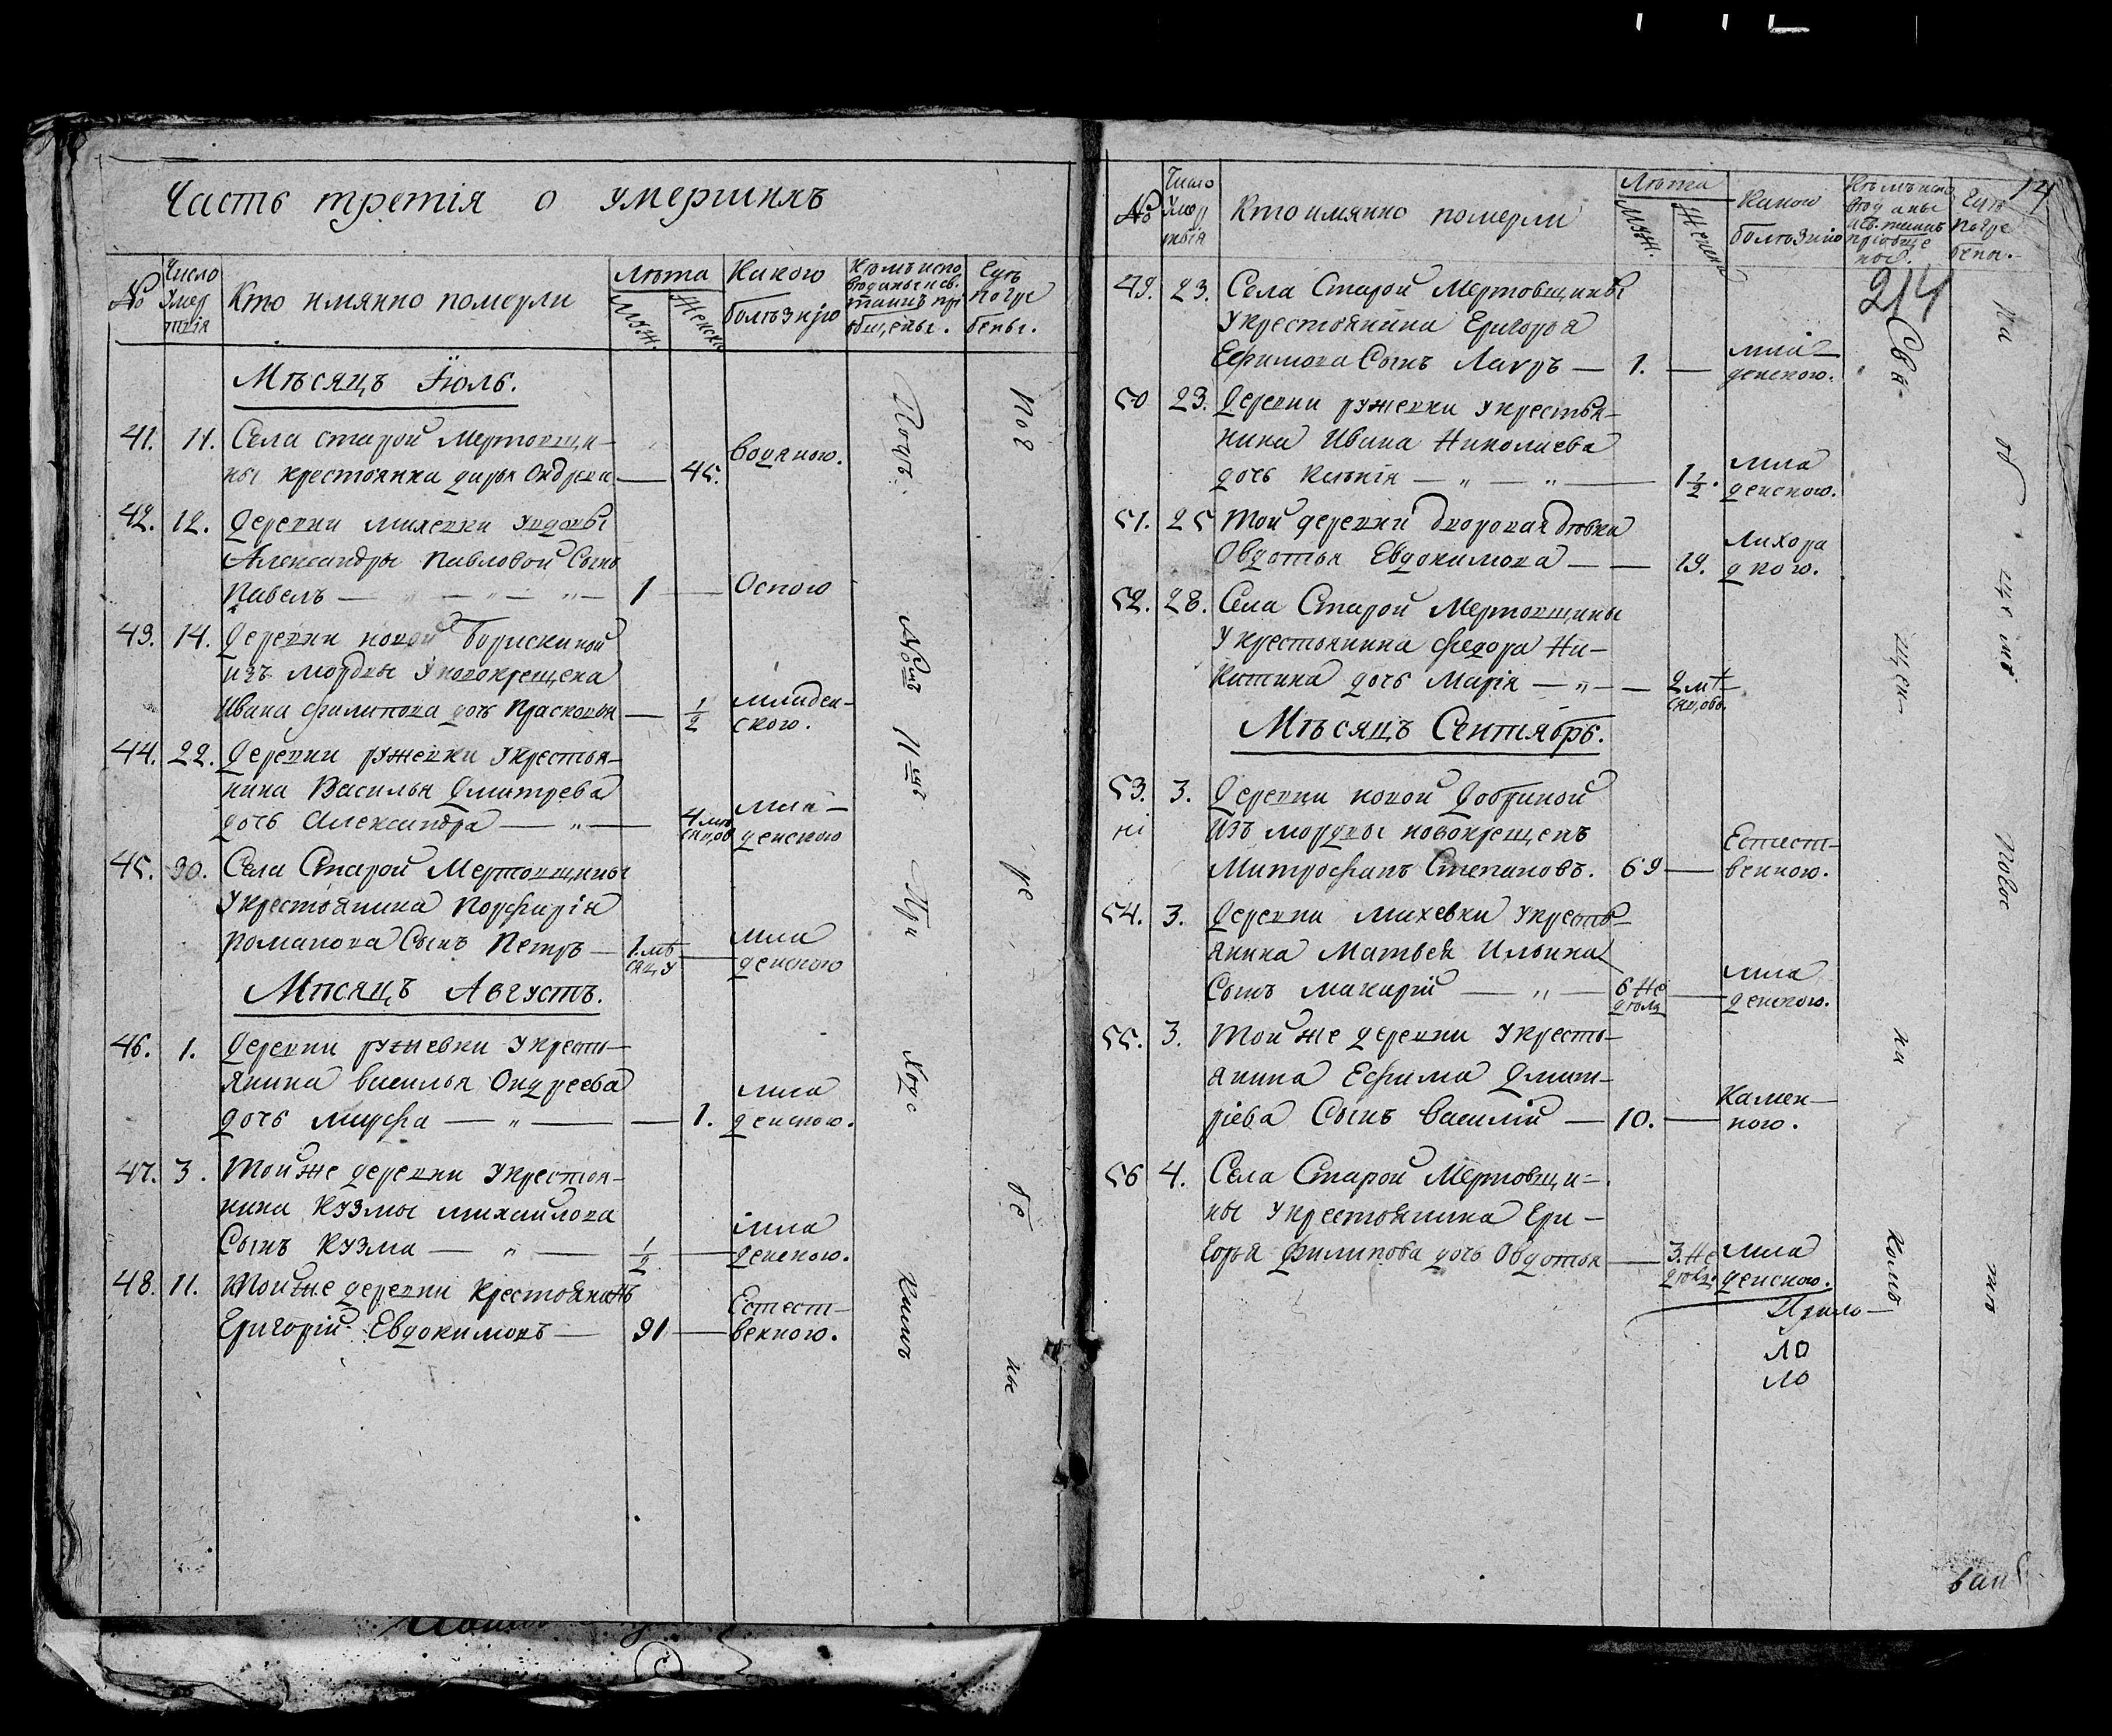 Часть третія о умершихъ
№ Число умертвія Кто имянно померли Лѣта Муж. Женска Какою болѣзнію Кѣмъ исповѣданы и св. таинъ пріобщены. Гдѣ погребены.
Мѣсяцъ Іюль.
41. 11. Села старой Мертовщи-
ны крестьянка дарья Ондреева — 45. водяною.
42. 12. Деревни михевки у вдовы
Александры Павловой Сынъ
Павелъ — „ — „ — „ — 1 — Оспою
43. 14. Деревни новой Борискиной
изъ мордвы у новокрещена
Ивана филипова дочь Прасковья — 1/2 младен-
ского.
44. 22. Деревни ружевки у крестья-
нина Василья Дмитрева
дочь Александра — „ — 4 мѣсяцовъ мла-
денскою
45. 30. Села Старой Мертовщины
у крестьянина Порфирія
романова Сынъ Петръ — 1. мѣсяцу — мла
денскою
Мѣсяцъ Августъ.
46. 1. Деревни ружевки у кресть-
янина василья Ондреева
дочь марфа — „ — — 1. мла
денскою.
47. 3. Той же деревни у крестья-
нина Кузмы михаилова
Сынъ Кузма — „ — 1/2 — мла
денскою.
48. 11. Той же деревни крестьянинъ
Григорій Евдокимовъ — 91 — Естест-
венною.
По г ре бе ны
№ Число умертвія Кто имянно померли Лѣта Муж. Женска Какою болѣзнію Гдѣ погребены.
214
49. 23. Села Старой Мертовщины
у крестьянина Григорья
Ефимова Сынъ Лавръ — 1. — мла-
денскою.
50 23. Деревни ружевки у крестья-
нина Ивана Николаева
дочь Ксенія — „ — „ — 1 1/2. мла
денскою.
51. 25 Той деревни дворовая дѣвка
Овдотья Евдокимова — — 19. Лихора
дкою.
52. 28. Села Старой Мертовщины
у крестьянина Федора Ни-
китина дочь Марія — „ — — 2 мѣ-
сяцовъ.
Мѣсяцъ Сентябрь.
53. 3. Деревни новой Добриной
изъ мордвы новокрещенъ
Митрофанъ Степановъ. 69 — Естест-
венною.
54. 3. Деревни михевки у кресть-
янина Матвея Ильина
Сынъ макарій — „ — 6 не
дѣль — мла
денскою.
55. 3. Той же деревни у кресть-
янина Ефима Дмит-
ріева Сынъ василій — 10. — Камен-
ною.
56 4. Села Старой Мертовщи-
ны у крестьянина Гри-
горья филипова дочь Овдотья — 3. не
дѣль мла
денскою.